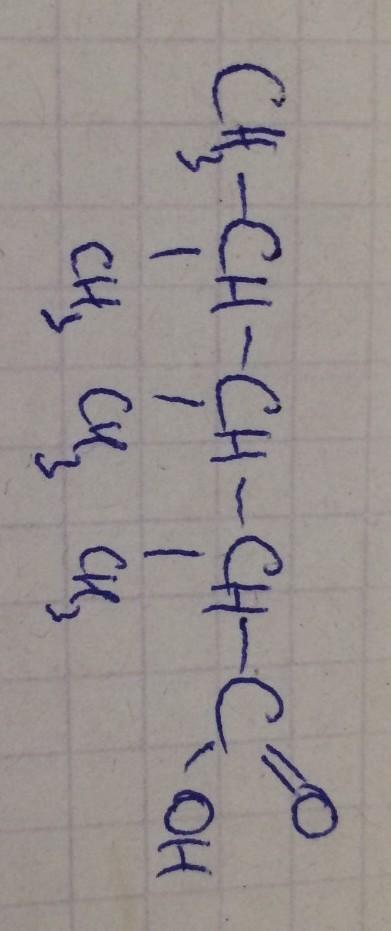 CH₃-CH-CH-CH-C=O
CH₃ CH₃ CH₃ OH